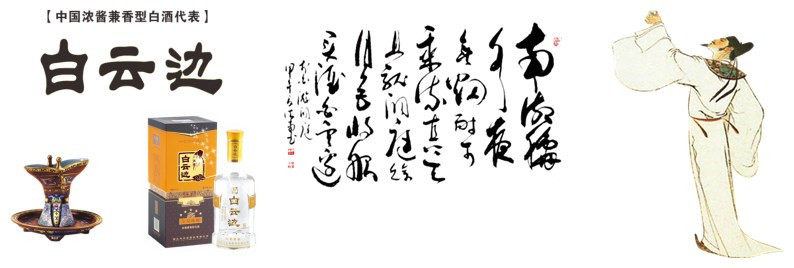 【中国浓酱兼香型白酒代表】
白云边
白云边
白云边
南湖秋
水夜
无烟耐可
乘流直上天
且就洞庭赊
月色将船
买酒白云边